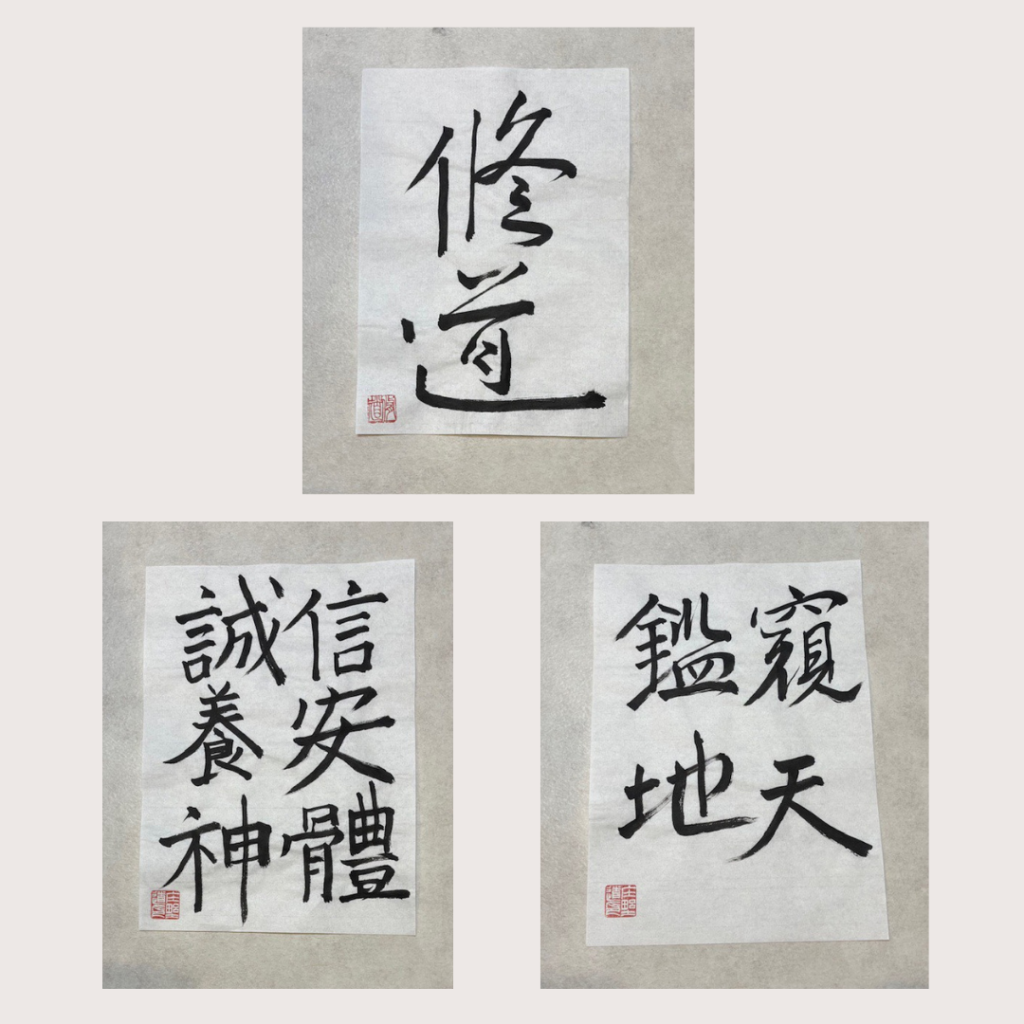 修道
信安體
誠養神
窺天
鑑地